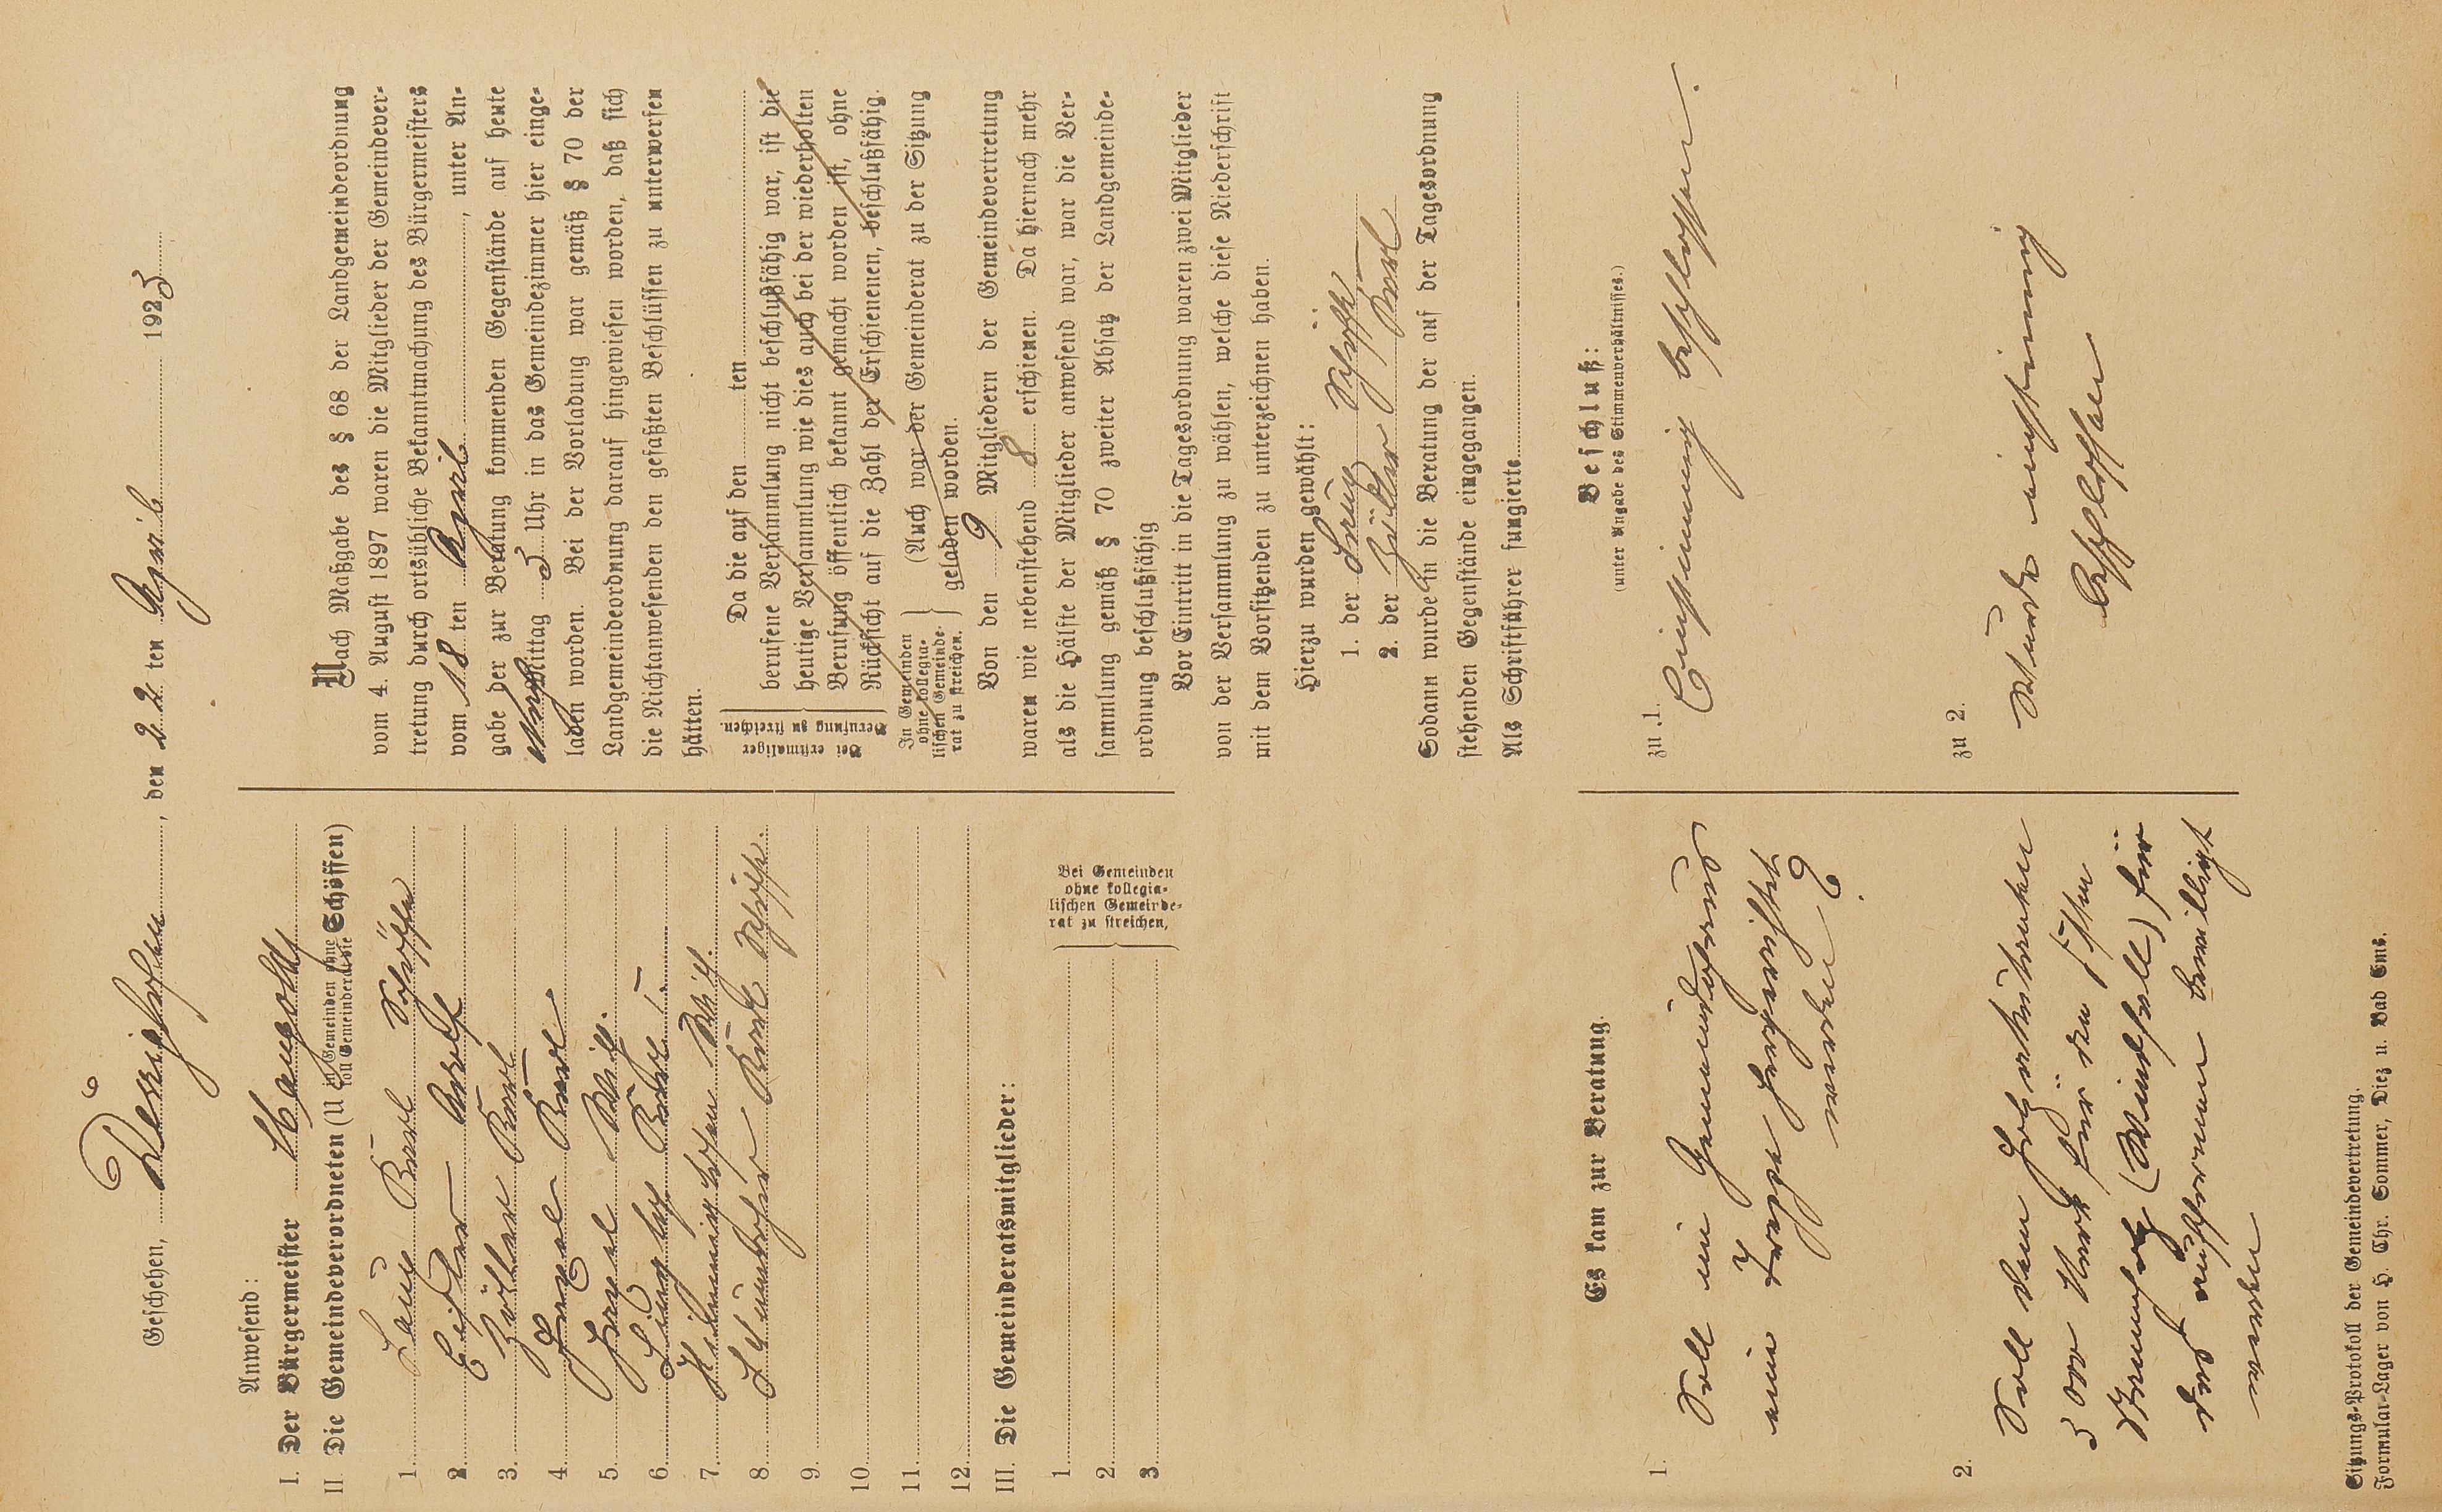 Geschehen, Dessighofen, den 22 ten April 1923
Anwesend:
I. Der Bürgermeister
II Die Gemeindeverordneten (U in Gemeinden ohne koll Gemeinderat die Schöffen)
1. Karl Schöffe
2. Adolf
3. Zöller Karl
4. Karl
5. Wilh.
6. Karl I.
7. Wilh.
8. Karl Schöffe.
9.
10.
11.
12.
III. Die Gemeinderatsmitglieder:
1.
2.
3.
Bei Gemeinden
ohne kollegia-
lischen Gemeinde-
rat zu streichen,
Nach Maßgabe des § 68 der Landgemeindeordnung
vom 4. August 1897 waren die Mitglieder der Gemeindever-
tretung durch ortsübliche Bekanntmachung des Bürgermeisters
vom 18 ten April, unter An-
gabe der zur Beratung kommenden Gegenstände auf heute
Nachmittag 3 Uhr in das Gemeindezimmer hier einge-
laden worden. Bei der Vorladung war gemäß § 70 der
Landgemeindeordnung darauf hingewiesen worden, daß sich
die Nichtanwesenden den gefaßten Beschlüssen zu unterwerfen
hätten.
Bei erstmaliger
Berufung zu streichen.
Da die auf den ten
berufene Versammlung nicht beschlußfähig war, ist die
heutige Versammlung wie dies auch bei der wiederholten
Berufung öffentlich bekannt gemacht worden ist, ohne
Rücksicht auf die Zahl der Erschienenen, beschlußfähig.
In Gemeinden
ohne kollegia-
lischen Gemeinde-
rat zu streichen.
(Auch war der Gemeinderat zu der Sitzung
geladen worden.
Von den 9 Mitgliedern der Gemeindevertretung
waren wie nebenstehend 8 erschienen. Da hiernach mehr
als die Hälfte der Mitglieder anwesend war, war die Ver-
sammlung gemäß § 70 zweiter Absatz der Landgemeinde-
ordnung beschlußfähig
Vor Eintritt in die Tagesordnung waren zwei Mitglieder
von der Versammlung zu wählen, welche diese Niederschrift
mit dem Vorsitzenden zu unterzeichnen haben.
Hierzu wurden gewählt:
1. der Schöffe
2. der Zöller Karl
Sodann wurde in die Beratung der auf der Tagesordnung
stehenden Gegenstände eingegangen.
Als Schriftführer fungierte
Es kam zur Beratung.
1. Soll im Gemeindehaus
eine
werden?
2. Soll dem
500 Mark für den
(Windfall) für
das bewilligt
werden
Beschluß:
(unter Angabe des Stimmenverhältnisses.)
zu 1. Einstimmig beschlossen.
zu 2. Wurde einstimmig
beschlossen
Sitzungs-Protokoll der Gemeindevertretung.
Formular-Lager von H. Chr. Sommer, Diez u. Bad Ems.